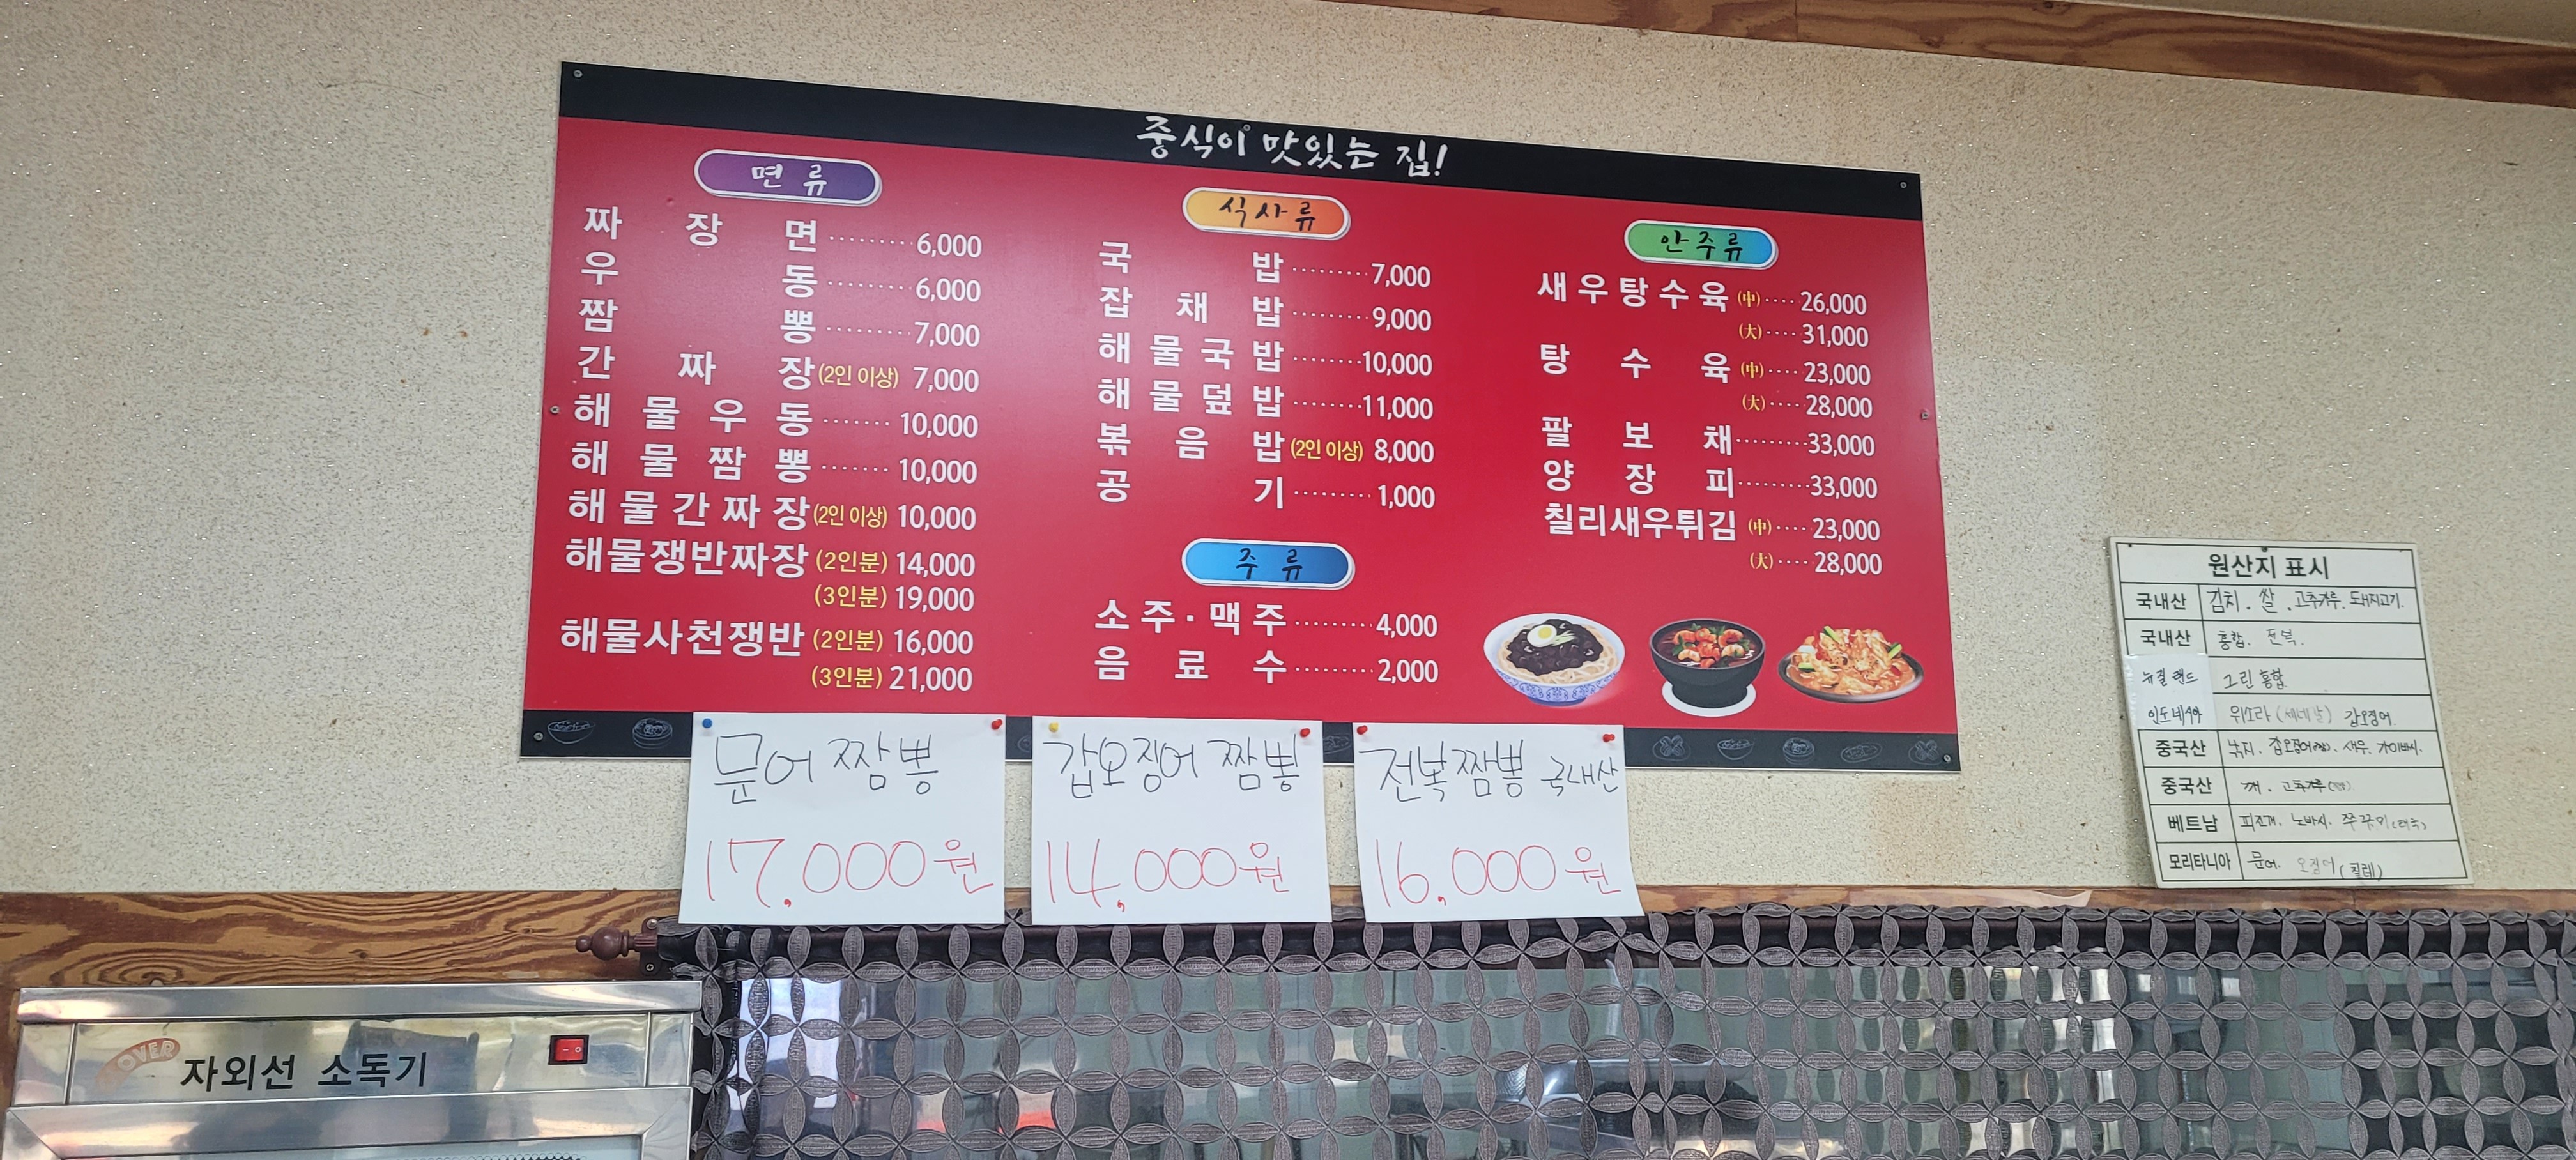 중식이 맛있는 집!
면류
짜장면 ········ 6,000
우동 ········ 6,000
짬뽕 ········ 7,000
간짜장 (2인 이상) 7,000
해물우동 ······· 10,000
해물짬뽕 ······· 10,000
해물간짜장 (2인 이상) 10,000
해물쟁반짜장 (2인분) 14,000
(3인분) 19,000
해물사천쟁반 (2인분) 16,000
(3인분) 21,000
식사류
국밥 ········ 7,000
잡채밥 ········ 9,000
해물국밥 ······· 10,000
해물덮밥 ······· 11,000
볶음밥 (2인 이상) 8,000
공기 ········ 1,000
주류
소주·맥주 ········ 4,000
음료수 ········ 2,000
안주류
새우탕수육 (中) ···· 26,000
(大) ···· 31,000
탕수육 (中) ···· 23,000
(大) ···· 28,000
팔보채 ········ 33,000
양장피 ········ 33,000
칠리새우튀김 (中) ···· 23,000
(大) ···· 28,000
문어짬뽕
17,000원
갑오징어 짬뽕
14,000원
전복짬뽕 국내산
16,000원
원산지 표시
국내산 김치. 쌀. 고추가루. 돼지고기.
국내산 홍합. 전복.
뉴질랜드 그린홍합
인도네시아 위소라 (세네갈) 갑오징어.
중국산 낙지. 갑오징어. 새우. 가이바시.
중국산 깨. 고추가루
베트남 쭈꾸미
모리타니아 문어. 오징어 (칠레)
자외선 소독기